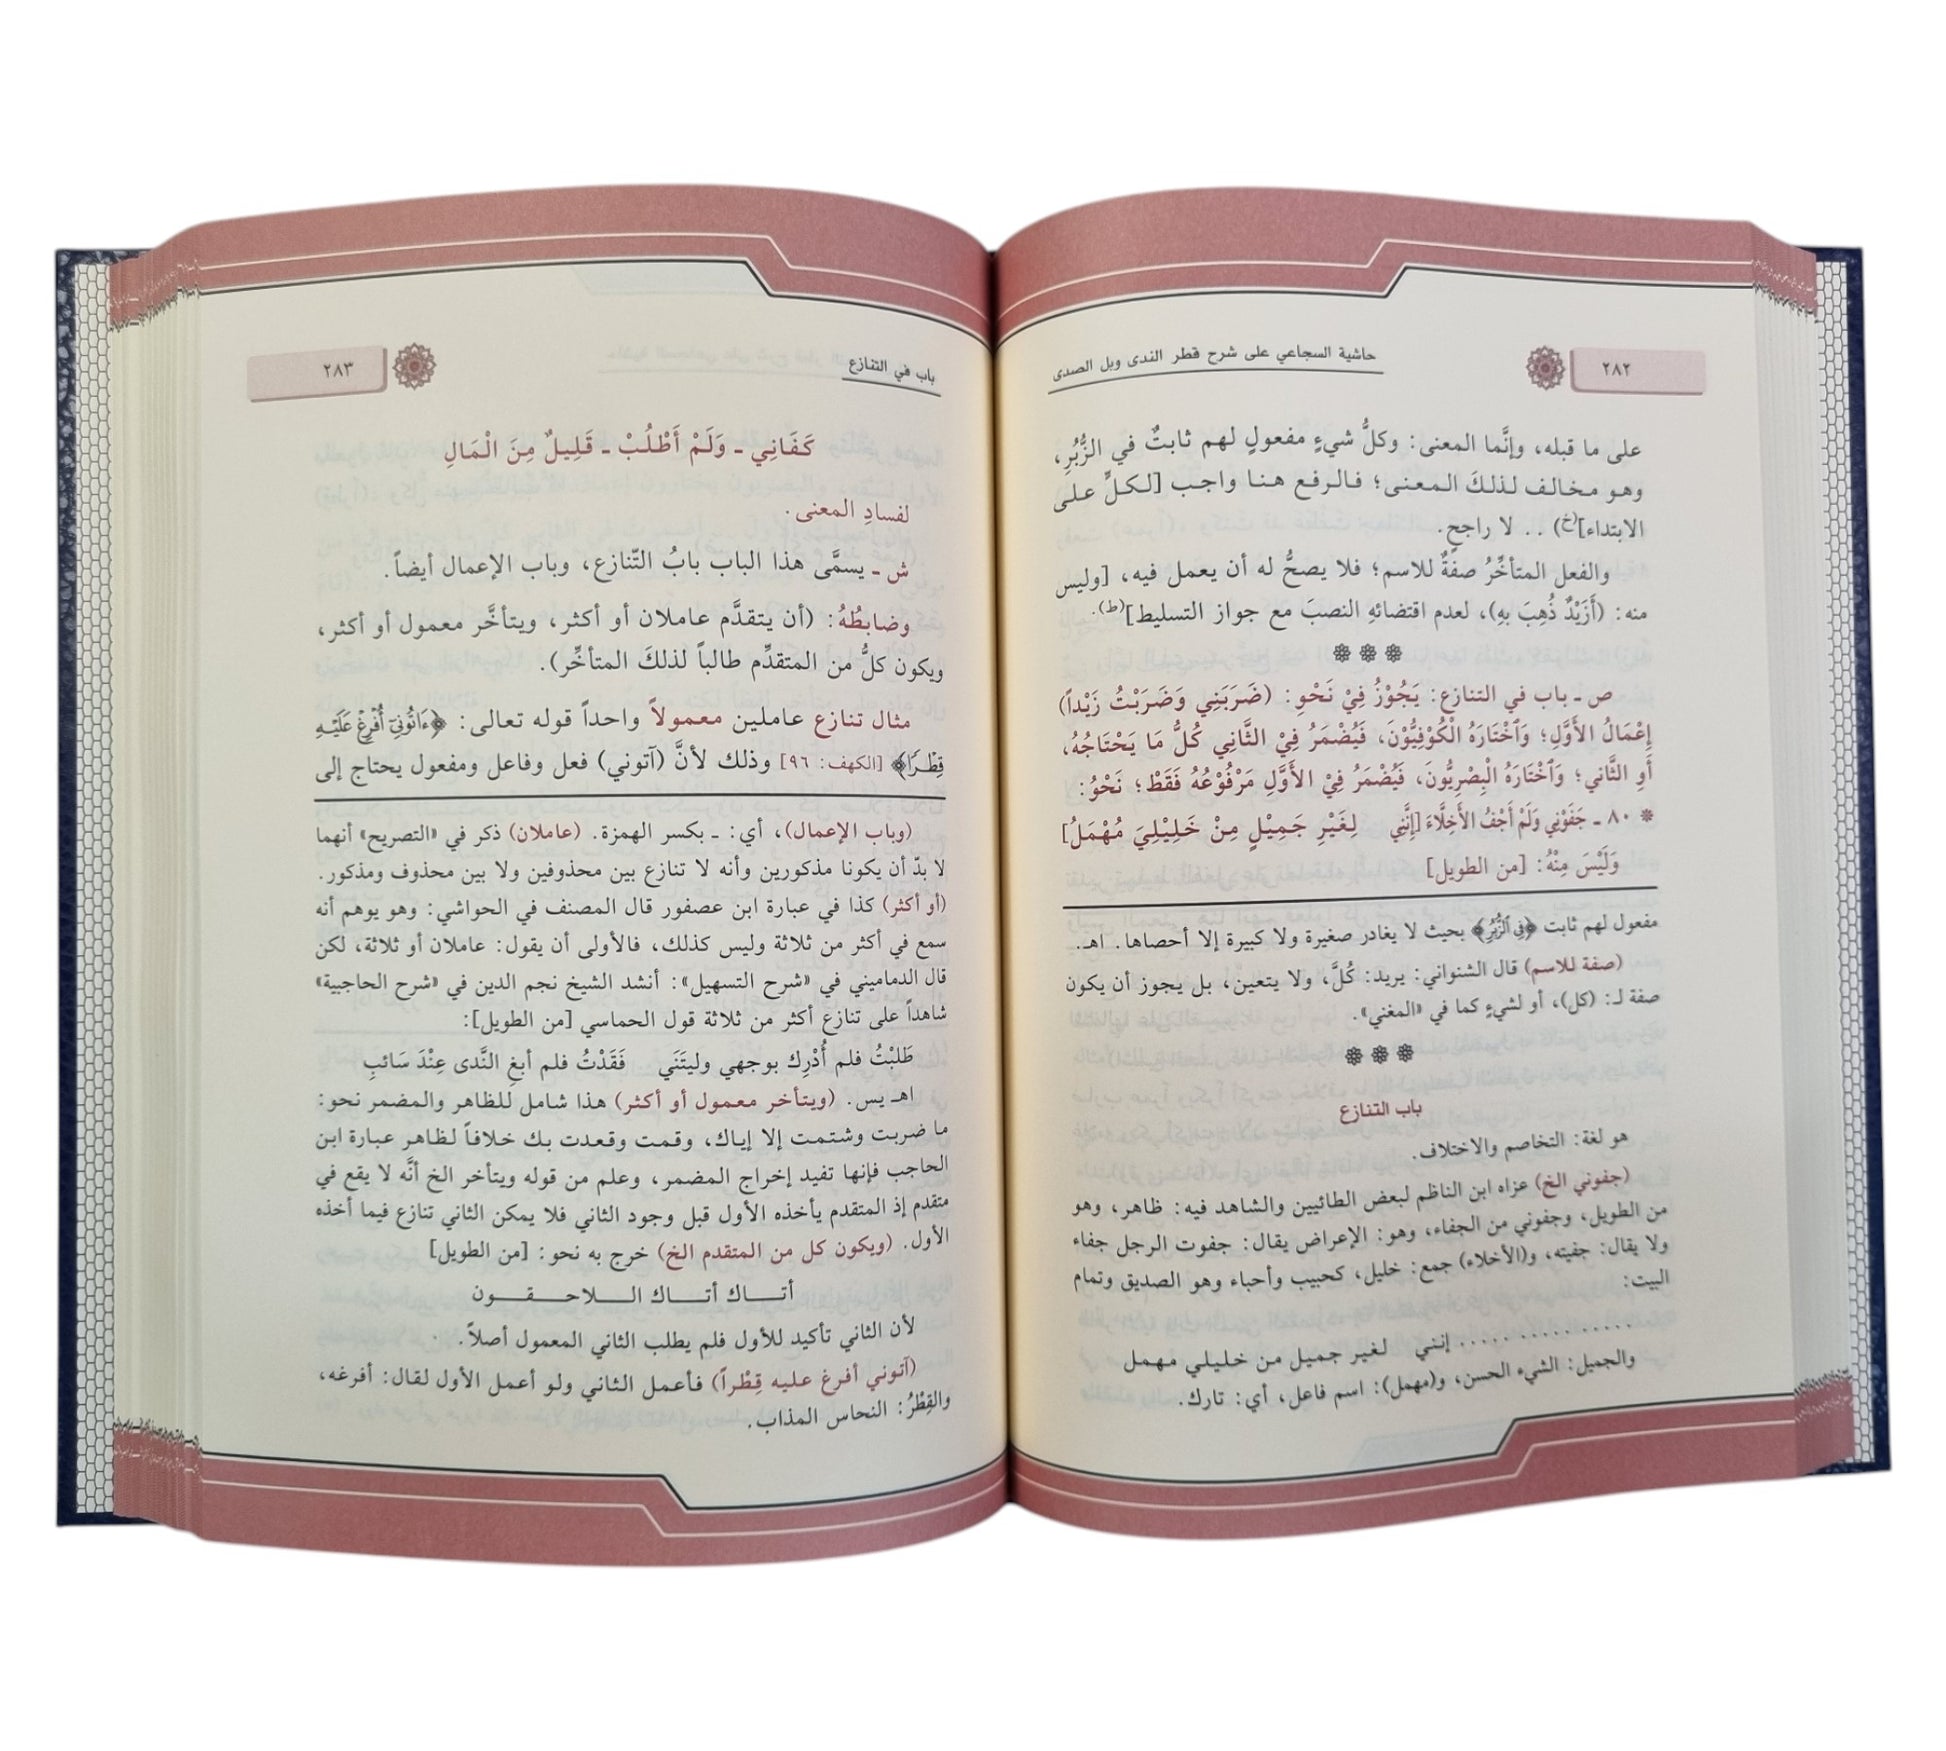 ٢٨٢
حاشية السجاعي على شرح قطر الندى وبل الصدى
على ما قبله، وإنَّما المعنى: وكلُّ شيءٍ مفعولٍ لهم ثابتٌ في الزُّبُرِ،
وهو مخالف لذلكَ المعنى؛ فالرفع هنا واجب [لكلٍّ على
الابتداء](خ) .. لا راجح.
والفعل المتأخِّرُ صفةٌ للاسم؛ فلا يصحُّ له أن يعمل فيه، [وليس
منه: (أَزَيْدٌ ذُهِبَ بهِ)، لعدم اقتضائهِ النصبَ مع جواز التسليط](ط).
ص ـ باب في التنازع: يَجُوْزُ فِيْ نَحْوِ: (ضَرَبَنِي وَضَرَبْتُ زَيْداً)
إِعْمَالُ الأَوَّلِ؛ وَٱخْتَارَهُ الْكُوْفِيُّوْنَ، فَيُضْمَرُ فِيْ الثَّانِي كُلُّ مَا يَحْتَاجُهُ،
أَوِ الثَّاني؛ وَٱخْتَارَهُ الْبِصْرِيُّونَ، فَيُضْمَرُ فِيْ الأَوَّلِ مَرْفُوْعُهُ فَقَطْ؛ نَحْوُ:
* ٨٠ ـ جَفَوْنِي وَلَمْ أَجْفُ الأَخِلَّاءَ [إِنَّنِي لِغَيْرِ جَمِيْلٍ مِنْ خَلِيْلِيَ مُهْمَلُ]
وَلَيْسَ مِنْهُ: [من الطويل]
مفعول لهم ثابت ﴿فِي ٱلزُّبُرِ﴾ بحيث لا يغادر صغيرة ولا كبيرة إلا أحصاها. اهـ.
(صفة للاسم) قال الشنواني: يريد: كُلَّ، ولا يتعين، بل يجوز أن يكون
صفة لـ: (كل)، أو لشيءٍ كما في «المغني».
باب التنازع
هو لغة: التخاصم والاختلاف.
(جفوني الخ) عزاه ابن الناظم لبعض الطائيين والشاهد فيه: ظاهر، وهو
من الطويل، وجفوني من الجفاء، وهو: الإعراض يقال: جفوت الرجل جفاء
ولا يقال: جفيته، و(الأخلاء) جمع: خليل، كحبيب وأحباء وهو الصديق وتمام
البيت:
..... ..... ..... إنني لغير جميل من خليلي مهمل
والجميل: الشيء الحسن، و(مهمل): اسم فاعل، أي: تارك.
باب في التنازع
٢٨٣
كَفَانِي ـ وَلَمْ أَطْلُبْ ـ قَلِيلٌ مِنَ الْمَالِ
لفسادِ المعنى.
ش ـ يسمَّى هذا الباب بابُ التّنازع، وباب الإعمال أيضاً.
وضابطُهُ: (أن يتقدَّم عاملان أو أكثر، ويتأخَّر معمول أو أكثر،
ويكون كلُّ من المتقدِّم طالباً لذلكَ المتأخِّر).
مثال تنازع عاملين معمولاً واحداً قوله تعالى: ﴿ءَاتُونِيٓ أُفۡرِغۡ عَلَيۡهِ
قِطۡرٗا﴾ [الكهف: ٩٦] وذلك لأنَّ (آتوني) فعل وفاعل ومفعول يحتاج إلى
(وباب الإعمال)، أي: ـ بكسر الهمزة. (عاملان) ذكر في «التصريح» أنهما
لا بدّ أن يكونا مذكورين وأنه لا تنازع بين محذوفين ولا بين محذوف ومذكور.
(أو أكثر) كذا في عبارة ابن عصفور قال المصنف في الحواشي: وهو يوهم أنه
سمع في أكثر من ثلاثة وليس كذلك، فالأولى أن يقول: عاملان أو ثلاثة، لكن
قال الدماميني في «شرح التسهيل»: أنشد الشيخ نجم الدين في «شرح الحاجبية»
شاهداً على تنازع أكثر من ثلاثة قول الحماسي [من الطويل]:
طَلبْتُ فلم أُدْرِك بوجهي وليتَنَي فَقَدْتُ فلم أبغِ النَّدى عِنْدَ سَائبِ
اهـ يس. (ويتأخر معمول أو أكثر) هذا شامل للظاهر والمضمر نحو:
ما ضربت وشتمت إلا إياك، وقمت وقعدت بك خلافاً لظاهر عبارة ابن
الحاجب فإنها تفيد إخراج المضمر، وعلم من قوله ويتأخر الخ أنَّه لا يقع في
متقدم إذ المتقدم يأخذه الأول قبل وجود الثاني فلا يمكن الثاني تنازع فيما أخذه
الأول. (ويكون كل من المتقدم الخ) خرج به نحو: [من الطويل]
أتـــاك أتـــاك الـــلاحـــقـــون
لأن الثاني تأكيد للأول فلم يطلب الثاني المعمول أصلاً.
(آتوني أفرغ عليه قِطْراً) فأعمل الثاني ولو أعمل الأول لقال: أفرغه،
والقِطْرُ: النحاس المذاب.